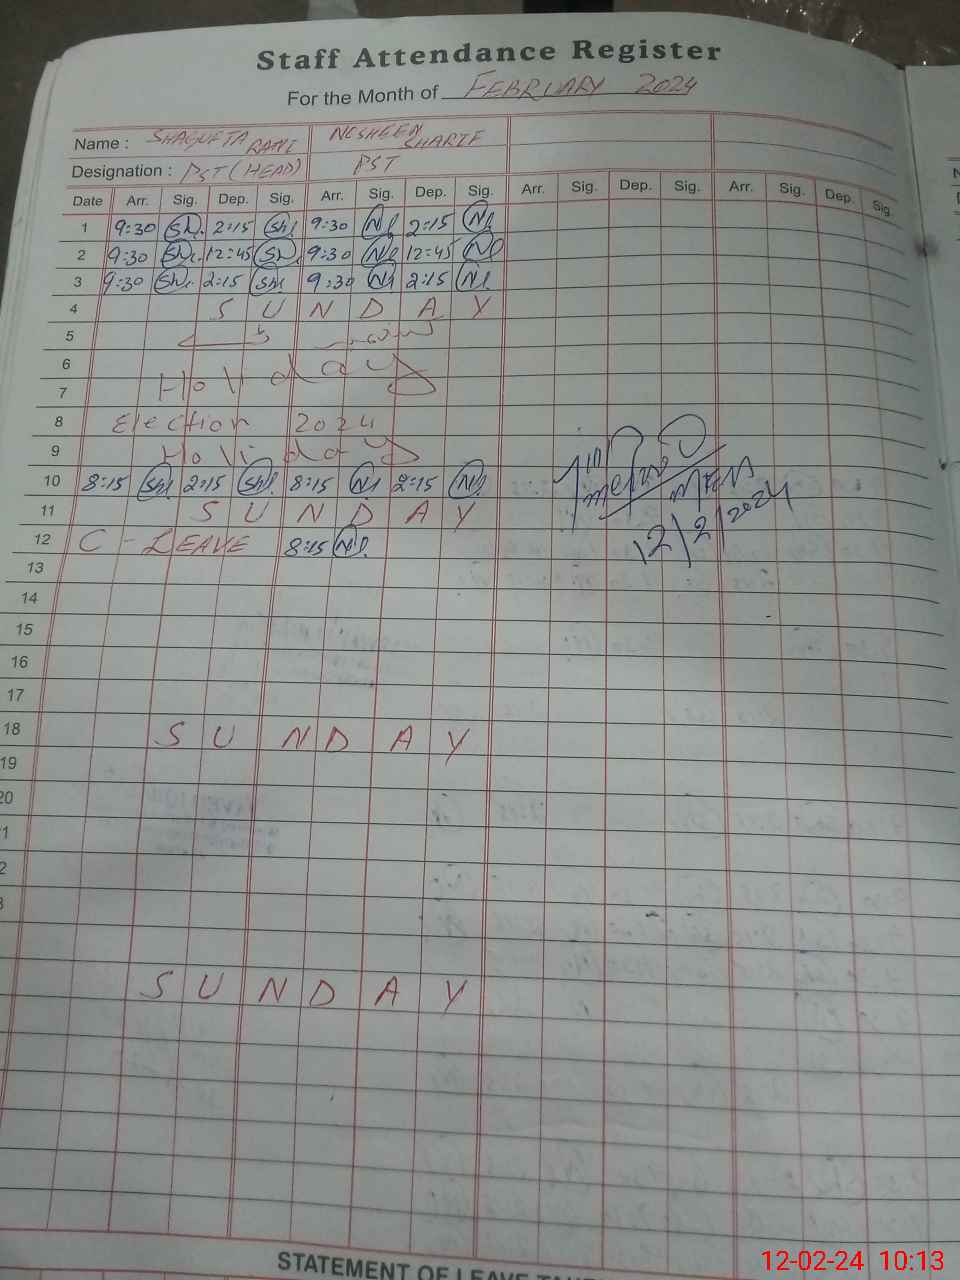 Staff Attendance Register
For the Month of FEBRUARY 2024
Name : SHAGUFTA RANI NOSHEEN SHARIF
Designation : PST (HEAD) PST
Date Arr. Sig. Dep. Sig. Arr. Sig. Dep. Sig. Arr. Sig. Dep. Sig. Arr. Sig. Dep. Sig.
1 9:30 Sh. 2:15 Sh. 9:30 N 2:15 N
2 9:30 Sh. 12:45 Sh. 9:30 N 12:45 N
3 9:30 Sh. 2:15 Sh. 9:30 N 2:15 N
4 S U N D A Y
5
6
7 Holiday
8 Election 2024
9 Holiday
10 8:15 Sh. 2:15 Sh. 8:15 N 2:15 N
11 S U N D A Y
12 C - LEAVE 8:15 N
12/2/2024
13
14
15
16
17
18 S U N D A Y
19
20
1
2
3
S U N D A Y
STATEMENT OF LEAVE
12-02-24 10:13